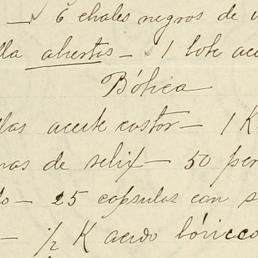 — 6 chales negros de
lla abiertos — 1 bote ace
Bótica
llas aceite castor — 1 K
nas de selix — 50 per
o — 25 capsulas con s
— ½ K acido bóricco